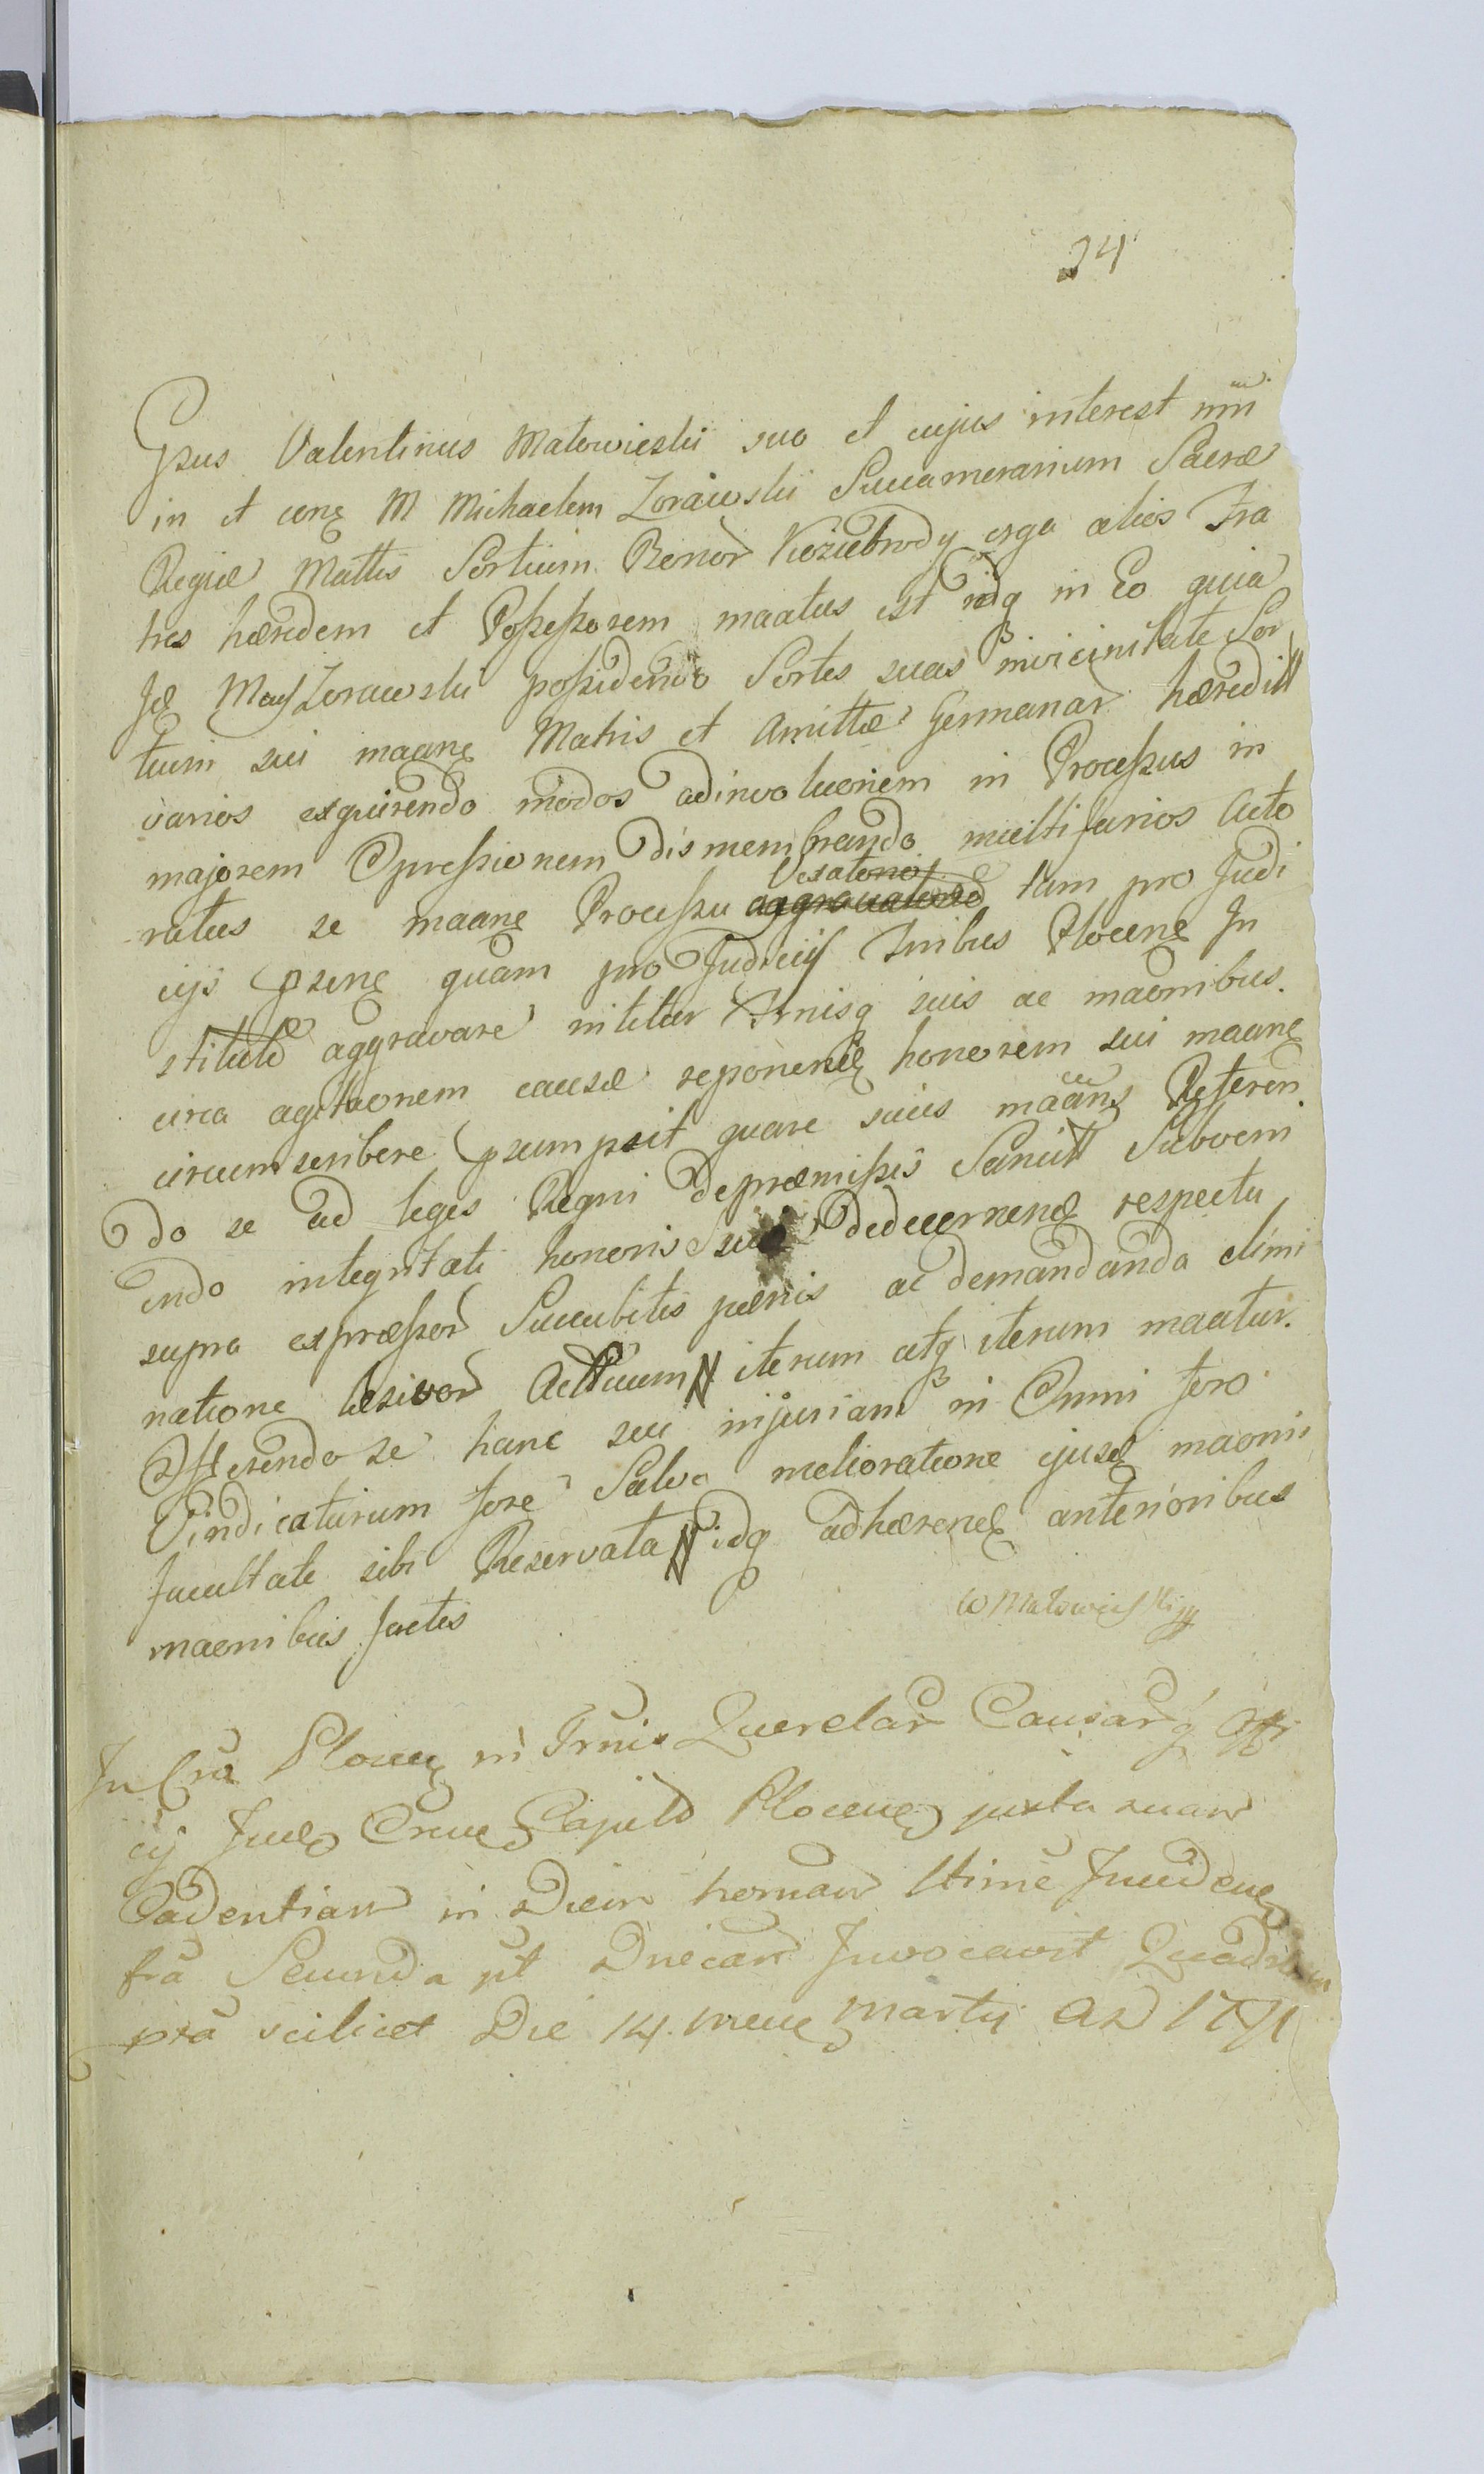 34
Gsus Valentinus Malowieski suo et cujus interest nm̄
in et conę M Michaelem Zorawski Succamerarium Sacræ
Regiæ Mattis Sortium Bonor Kuziebrody erga alios Fra
tres hæredem et Poſseſsorem maatus est idq in Eo quia
Zorawski poſsidendo Sortes suas in vicinitate Sor
tium sui maanę Matris et Amittæ Germanar hæreditt
varios exquirendo modos adinvolucnem in Proceſsus in
majorem Opreſsionem dismembrando multifarios Acto
ratus se maanę Proceſsu Vexatorio aggravatorio tam pro Judi
cijs psenę quam pro Judicijs Trnlibus Plocenę In
stitutæ aggravare nititur Trnisq suis ac maonibus.
circa agitaonem causæ reponendę honorem sui maanę
circumscribere psumpsit quare suus maans Referen
do se ad leges Regni de præmiſsis Sancitt Subveni
endo integritati honoris sui dedecernenę respectu
supra expræſsor Succubitis pænis ac demandanda elimi
natione læsivor Actituum iterum atq iterum maatur.
Offerendo se hanc suu injuriam in Omni foro
Vindicaturum fore Salva melioratione ejusd maonis
facultate sibi Reservata idq adhærendę anterioribus
maonibus factis
W Malowieski
In Cra Plocenę in Trnis Querelar Causarq Offi
cij Capit Plocenę juxta suam
Cadentiam in Diem hernam ltime Jnciden
fra Secunda pt Dnicam Invocavit
pta scilicet Die 14 mene Martij AD 1791